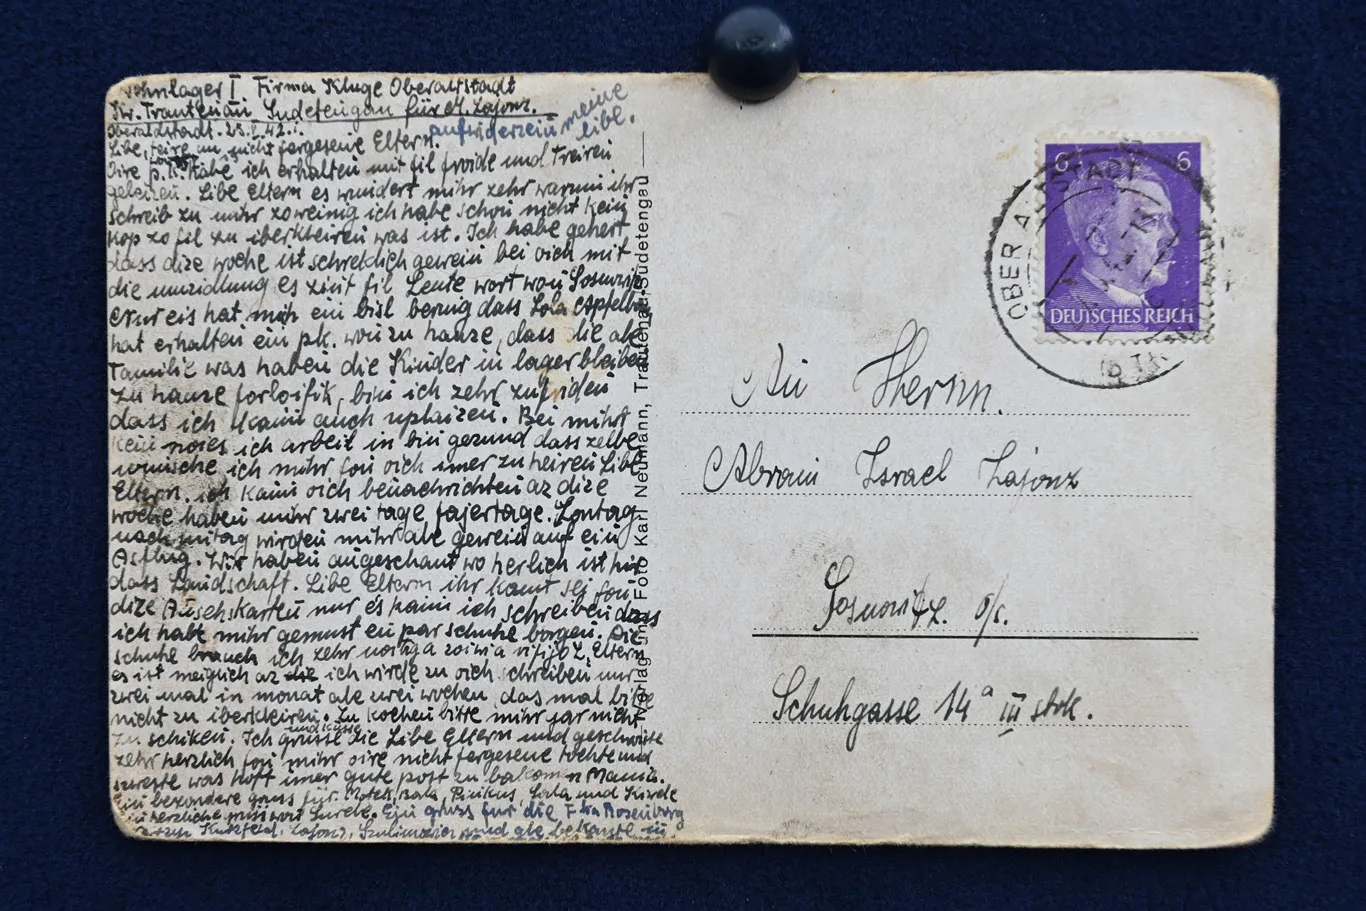 Wohnlager I Firma Kluge Oberaltstadt
Kr. Trautenau Sudetengau für M. Lajonz.
Oberaldstadt. 25.V.42.
aufwiderzein meine
libe.
Libe, teire un nicht fergesene Eltern.
Oire p.k. habe ich erhalten mit fil froide und Treiren
geleizen. Libe Eltern es wundert mihr zehr warum ihr
schreib zu mihr zo weinig ich habe schon nicht kein
kop zo fil zu iberkleiren was ist. Ich habe gehert
dass dize woche ist schreklich gewein bei oich mit
die umzidlung es zint fil Leute wort won Sosnowitz
Nur eis hat mich ein bisl berug dass Lola Apfelba
hat erhalten ein pk. won zu hauze, dass die ale
Familie was haben die Kinder in lager bleiben
zu hauze forloifik, bin ich zehr zufriden
dass ich kann auch uplaizen. Bei mihr
kein noies ich arbeit in bin gezund dasszelbe
wünsche ich mihr fon oich imer zu heiren Libe
Eltern. ich kann oich benachrichten az dize
woche haben mihr zwei tage fajertage. Zontag
nach mitag wirden mihr ale gewein auf ein
Ausflug. Wir haben angeschaut wo herlich ist hir
dass Landschaft. Libe Eltern ihr kamt sej fon
dize Ansehskarten nur es kann ich schreiben dass
ich habe mihr gemust ein par schuhe borgen. Die
schuhe brauch ich zehr L. Eltern
es ist meiglich az die ich wirde zu oich schreiben nur
zwei mal in monat ale zwei wochen, das mal bitte
nicht zu iberkleiren. Zu kochen bitte mihr gar nicht
zu schiken. Ich grüsse und küsse die Libe Eltern und geschwiste
zehr herzlich fon mihr oire nicht fergesene tochte und
sweste was hoft imer gute post zu bakomen Mania.
Ein bezondere gruss für Lola und
Ein gruss fur die Fr. Rosenberg
Lajonz, und ale bekante
Verlag und Foto Karl Neumann, Trautenau Sudetengau
6 6
DEUTSCHES REICH
OBER ALTSTADT
An Herrn.
Abram Israel Lajonz
Sosnowitz. O/S.
Schuhgasse 14a III stck.